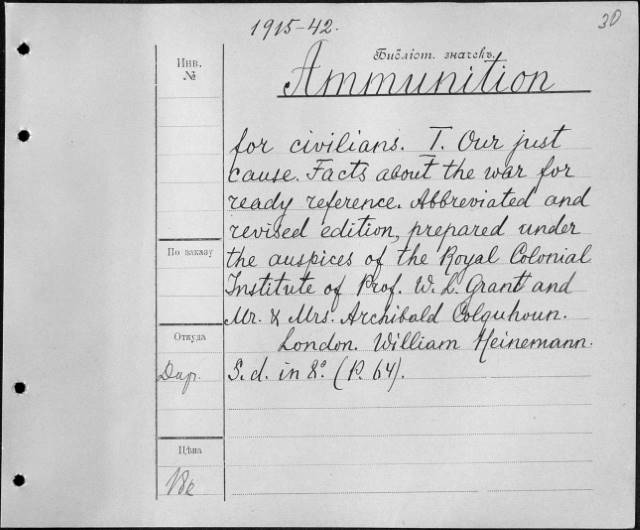 1915-42.
30
Библіот. значекъ.
Инв.
№
Ammunition
for civilians. I. Our just
cause. Facts about the war for
ready reference. Abbreviated and
revised edition, prepared under
the auspices of the Royal Colonial
По заказу
Institute of Prof. W. L. Grant and
Mr. & Mrs. Archibald Colquhoun.
Откуда
London. William Heinemann.
Дар.
S. d. in 8°. (P. 64).
Цѣна